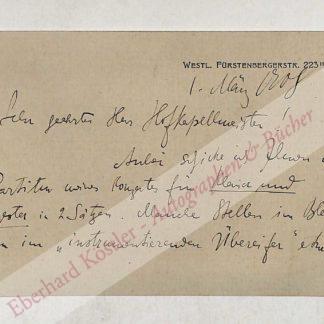 WESTL. FÜRSTENBERGERSTR. 223 III
1. März 1908
Sehr geehrter Herr Hofkapellmeister
Anbei schicke ich Ihnen die
Partitur meines Konzertes für Klavier und
ester in 2 Sätzen. Manche Stellen im Ble
en im „instrumentierenden Übereifer" etw
Eberhard Köstler - Autographen & Bücher